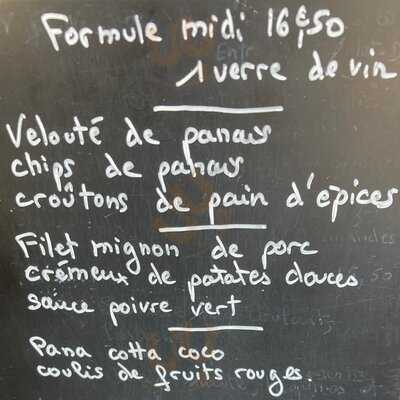 Formule midi 16€,50
1 verre de vin
Velouté de panais
chips de panais
croûtons de pain d'épices
Filet mignon de porc
crémeux de patates douces
sauce poivre vert
Pana cotta coco
coulis de fruits rouges.